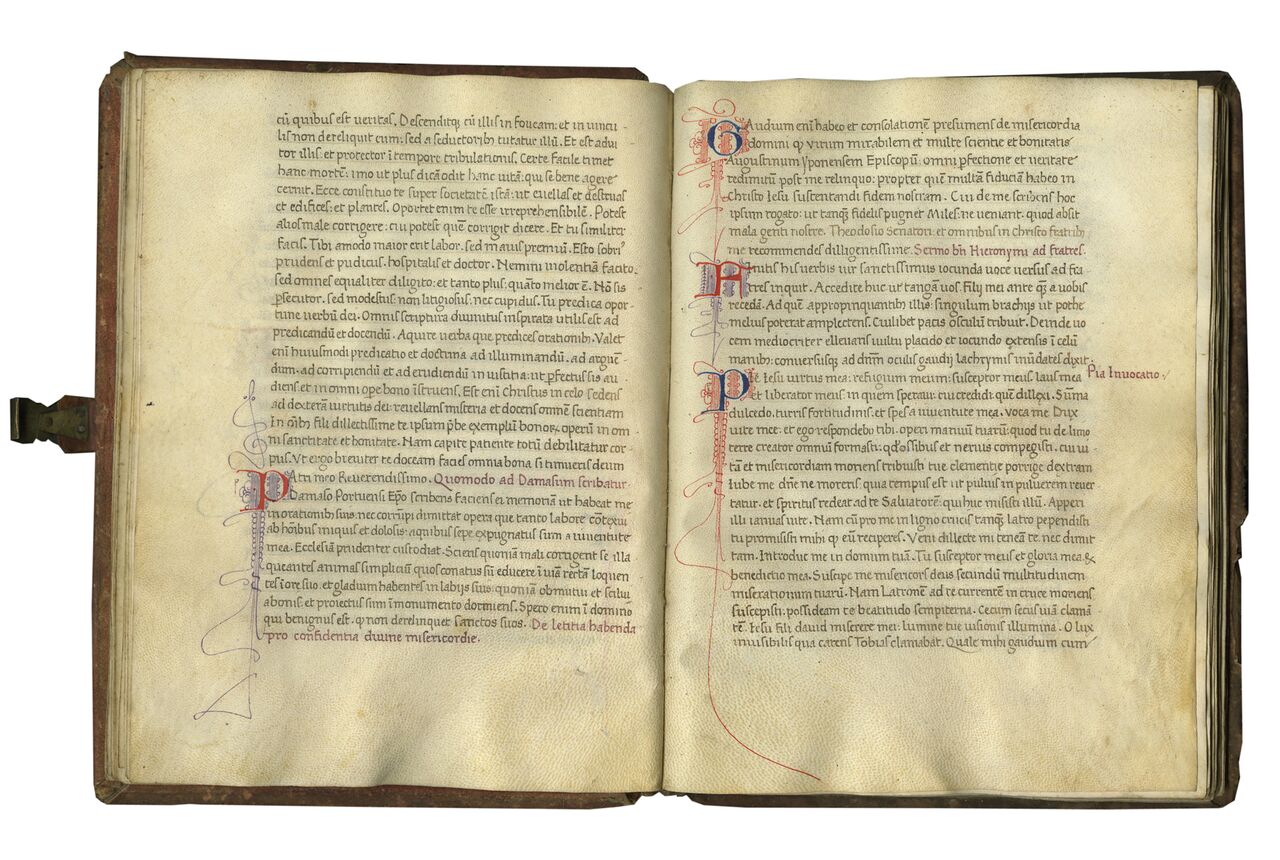 cū quibus est veritas. Descenditqꝫ cū illis in foueam: et in vincu-
lis non dereliquit eum: sed a seductoribꝫ tutatur illū. Et est adiu
tor illis: et protector ī tempore tribulationis. Certe Facile timet
hanc mortē: imo ut plus dicā odit hanc uitā: qui se bene agere
cernit. Ecce constituo te super societatē istā: ut euellas et destruas
et edifices: et plantes. Oportet enim te esse irreprehensibilē. Potest
alios male corrigere: cui potest quē corrigit dicere. Et tu similiter
facis. Tibi amodo maior erit labor, sed maius premiū. Esto sobriꝰ
prudens et pudicus. hospitalis et doctor. Nemini uiolentiā facito:
sed omnes equaliter diligito: et tanto plus: quāto melior ē. Nō sis
p̄secutor. sed modestus: non litigiosus: nec cupidus. Tu predica opor-
tune verbū dei. Omnis scriptura diuinitus inspirata utilis est ad
predicandū et docendū. Aquire verba que precedēs orationibꝫ. Valet
enī huiusmodi predicatio et doctrina ad illuminandū. ad arguen-
dum. ad corripiendū et ad erudiendū in iustitia: ut p̄fectus sis au-
diens et in omni ope bono īstruens. Est enī Christus in celo sedens
ad dexterā uirtutis dei: reuellans misteria et docens omnē scientiam
In oībꝫ fili dillectissime te ipsum p̄be exemplū bonoꝝ operū in om
ni sanctitate et bonitate. Nam capite patiente totū debilitatur cor
pus. Vt ergo breuiter te doceam facies omnia bona si timueris deum
PAtri meo Reuerendissimo. Quomodo ad Damasum scribatur.
Damaso Portuensi Ep̄o scribens facies ei memoriā ut habeat me
in orationibꝫ suis. nec corrūpi dimittat opera que tanto labore cōtexui
ab hōnibus iniquis et dolosis: a quibus sepe expugnatus sum a iuuentute
mea. Ecclesiā prudenter custodiat. Sciens quoniā mali corrigent se illa
queantes animas simpliciū quos conatus sū educere ī uiā rectā loquen
tes ī ore suo. et gladium habentes in labijs suis: quoniā obmutui et silui
a bonis: et proiectus sum ī monumento dormiens. Spero enim ī domino
qui benignus est. ꝙ non derelinquet sanctos suos. De letitia habenda
pro confidentia diuine misericordie.
GAudium enī habeo et consolationē presumens de misericordia
domini ꝙ virum mirabilem et multe scientie et bonitatis
Augustinum Yponensem Episcopū: omni p̄fectione et ueritate
redimitū post me relinquo: propter quē multā fiduciā habeo in
Christo Iesu sustentandi fidem nostram. Cui de me scribens hoc
ipsum rogato: ut tanqꝫ fidelis pugnet Miles: ne ueniant. quod absit
mala genti nostre. Theodosio Senatori: et omnibus in Christo fratribꝫ
me recommendes dilligentissime. Sermo bt̄i Hieronymi ad fratres.
Finitis his verbis uir sanctissimus iocunda voce versus ad fra
tres inquit. Accedite huc ut tangā uos filij mei ante qꝫ a uobis
recedā. Ad quē appropinquantibꝫ illis: singulum brachijs ut pothe
melius poterat amplectens. Cuilibet pacis osculū tribuit. Deinde uo
cem mediocriter elleuans uultu placido et iocundo extensis ī celū
manibꝫ: conuersusqꝫ ad dn̄m oculis gaudij lachrymis inūdatēs dixit.
PIe Iesu virtus mea: refugium meum: susceptor meus. laus mea
et liberator meus in quem speraui: cui credidi: quē dillexi. Sūma
dulcedo. turris fortitudinis. et spes a iuuentute mea. voca me Dux
uite mee: et ego respondebo tibi. opera manuū tuarū: quod tu de limo
terre creator omniū formasti: qd̓ ossibus et neruis compegisti. cui ui
tā et misericordiam moriens tribuisti tue clementie porrige dextram
Iube me dn̄e ne moreris. qua tempus est ut puluis in puluerem reuer
tatur. et spiritus redeat ad te Saluatorē: qui huc misisti illū. Apperi
illi ianuas uite. Nam cū pro me in ligno crucis tanqꝫ latro pependisti
tu promisisti mihi ꝙ eū reciperes. Veni dillecte mi teneā te. nec dimit
tam. Introduc me in domum tuā. Tu susceptor meus et gloria mea &
benedictio mea. Suscipe me misericors deus secundū multitudinem
miserationum tuarū. Nam Latronē ad te currentē in cruce moriens
suscepisti. possideam te beatitudo sempiterna. Cecum secus uiā clamā
tē. Iesu fili dauid miserere mei: lumine tue uisionis illumina. O lux
inuisibilis qua carens Tobias clamabat. Quale mihi gaudium cum
Pia Inuocatio.